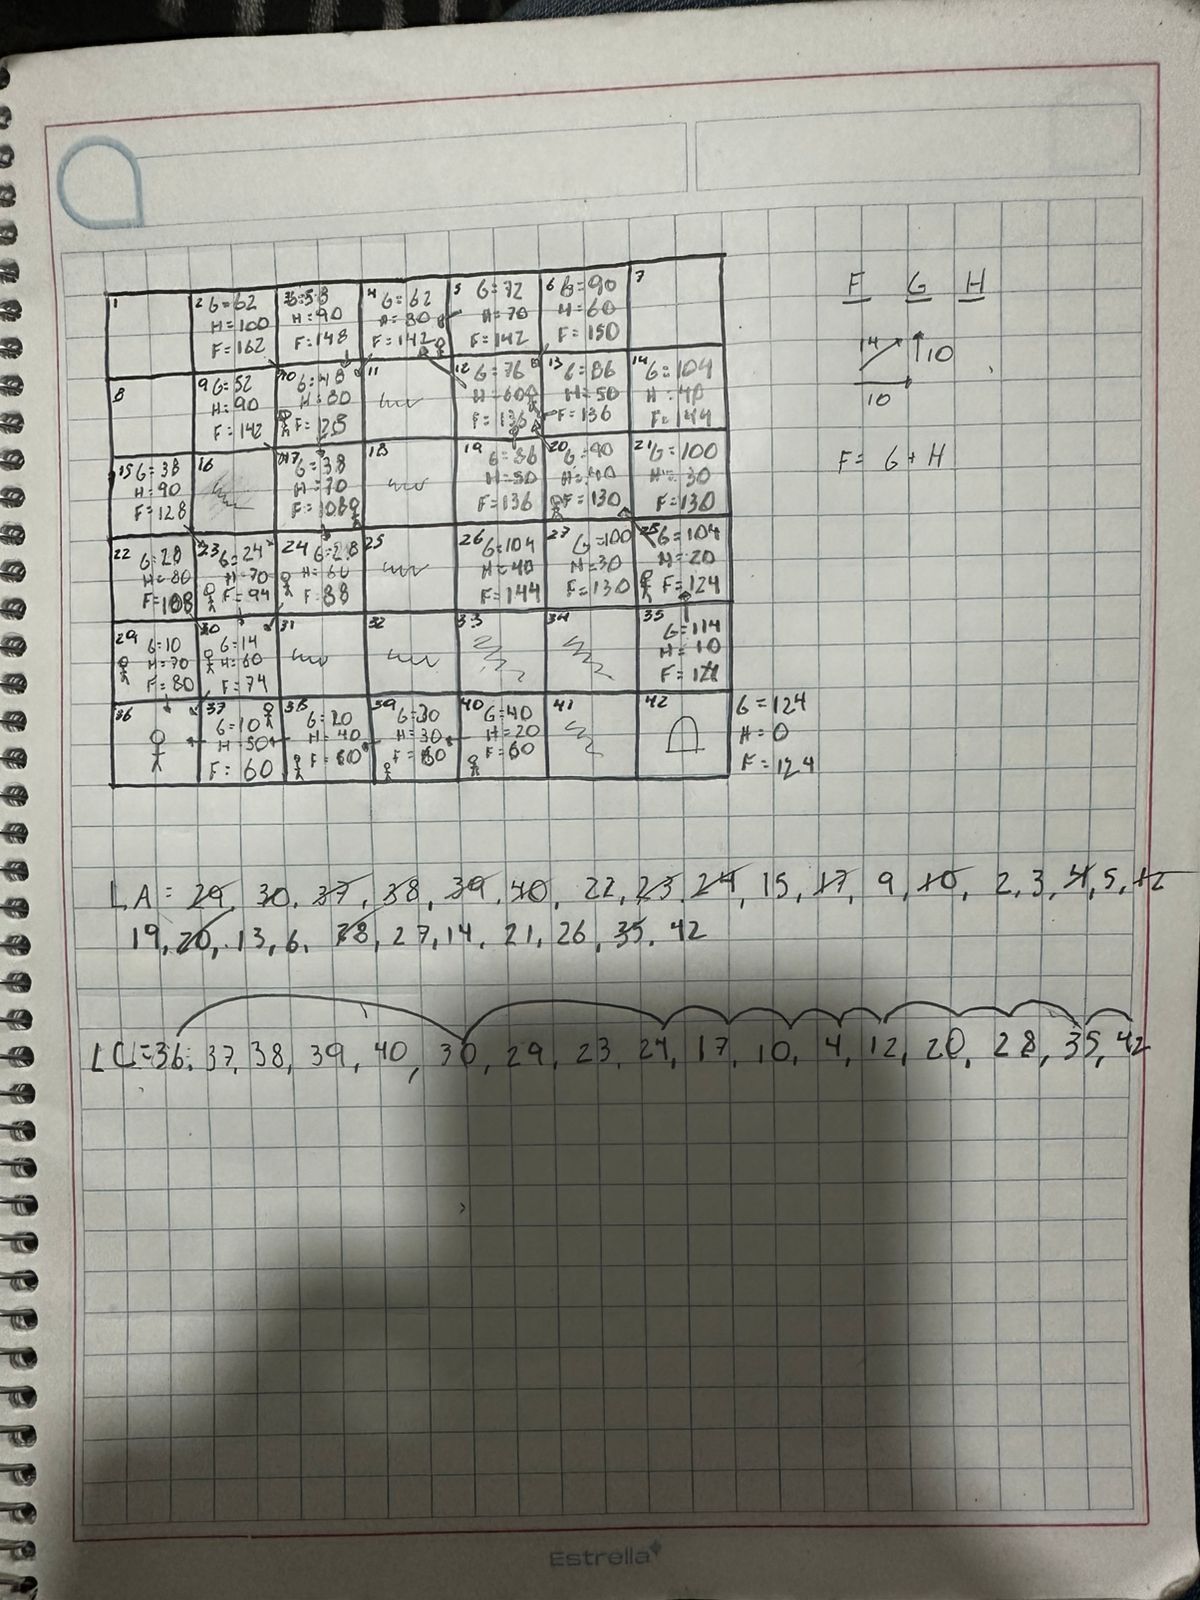 F G H
1
2 G=62
H=100
F=162
3 G=58
H=90
F=148
4 G=62
H=80
F=142
5 G=72
H=70
F=142
6 G=90
H=60
F=150
7
14
10
10
8
9 G=52
H=90
F=142
10 G=48
H=80
F=128
11
12 G=76
H=60
F=136
13 G=86
H=50
F=136
14 G=104
H=40
F=144
F= G+H
15 G=38
H=90
F=128
16
17 G=38
H=70
F=108
18
19 G=86
H=50
F=136
20 G=90
H=40
F=130
21 G=100
H=30
F=130
22 G=28
H=80
F=108
23 G=24
H=70
F=94
24 G=28
H=60
F=88
25
26 G=104
H=40
F=144
27 G=100
H=30
F=130
28 G=104
H=20
F=124
29 G=10
H=70
F=80
30 G=14
H=60
F=74
31
32
33
34
35 G=114
H=10
F=124
36
37 G=10
H=50
F=60
38 G=20
H=40
F=60
39 G=30
H=30
F=60
40 G=40
H=20
F=60
41
42
G=124
H=0
F=124
LA= 29, 30, 37, 38, 39, 40, 22, 23, 24, 15, 17, 9, 10, 2, 3, 4, 5, 12
19, 20, 13, 6, 28, 27, 14, 21, 26, 35, 42
LC=36, 37, 38, 39, 40, 30, 29, 23, 24, 17, 10, 4, 12, 20, 28, 35, 42
Estrella